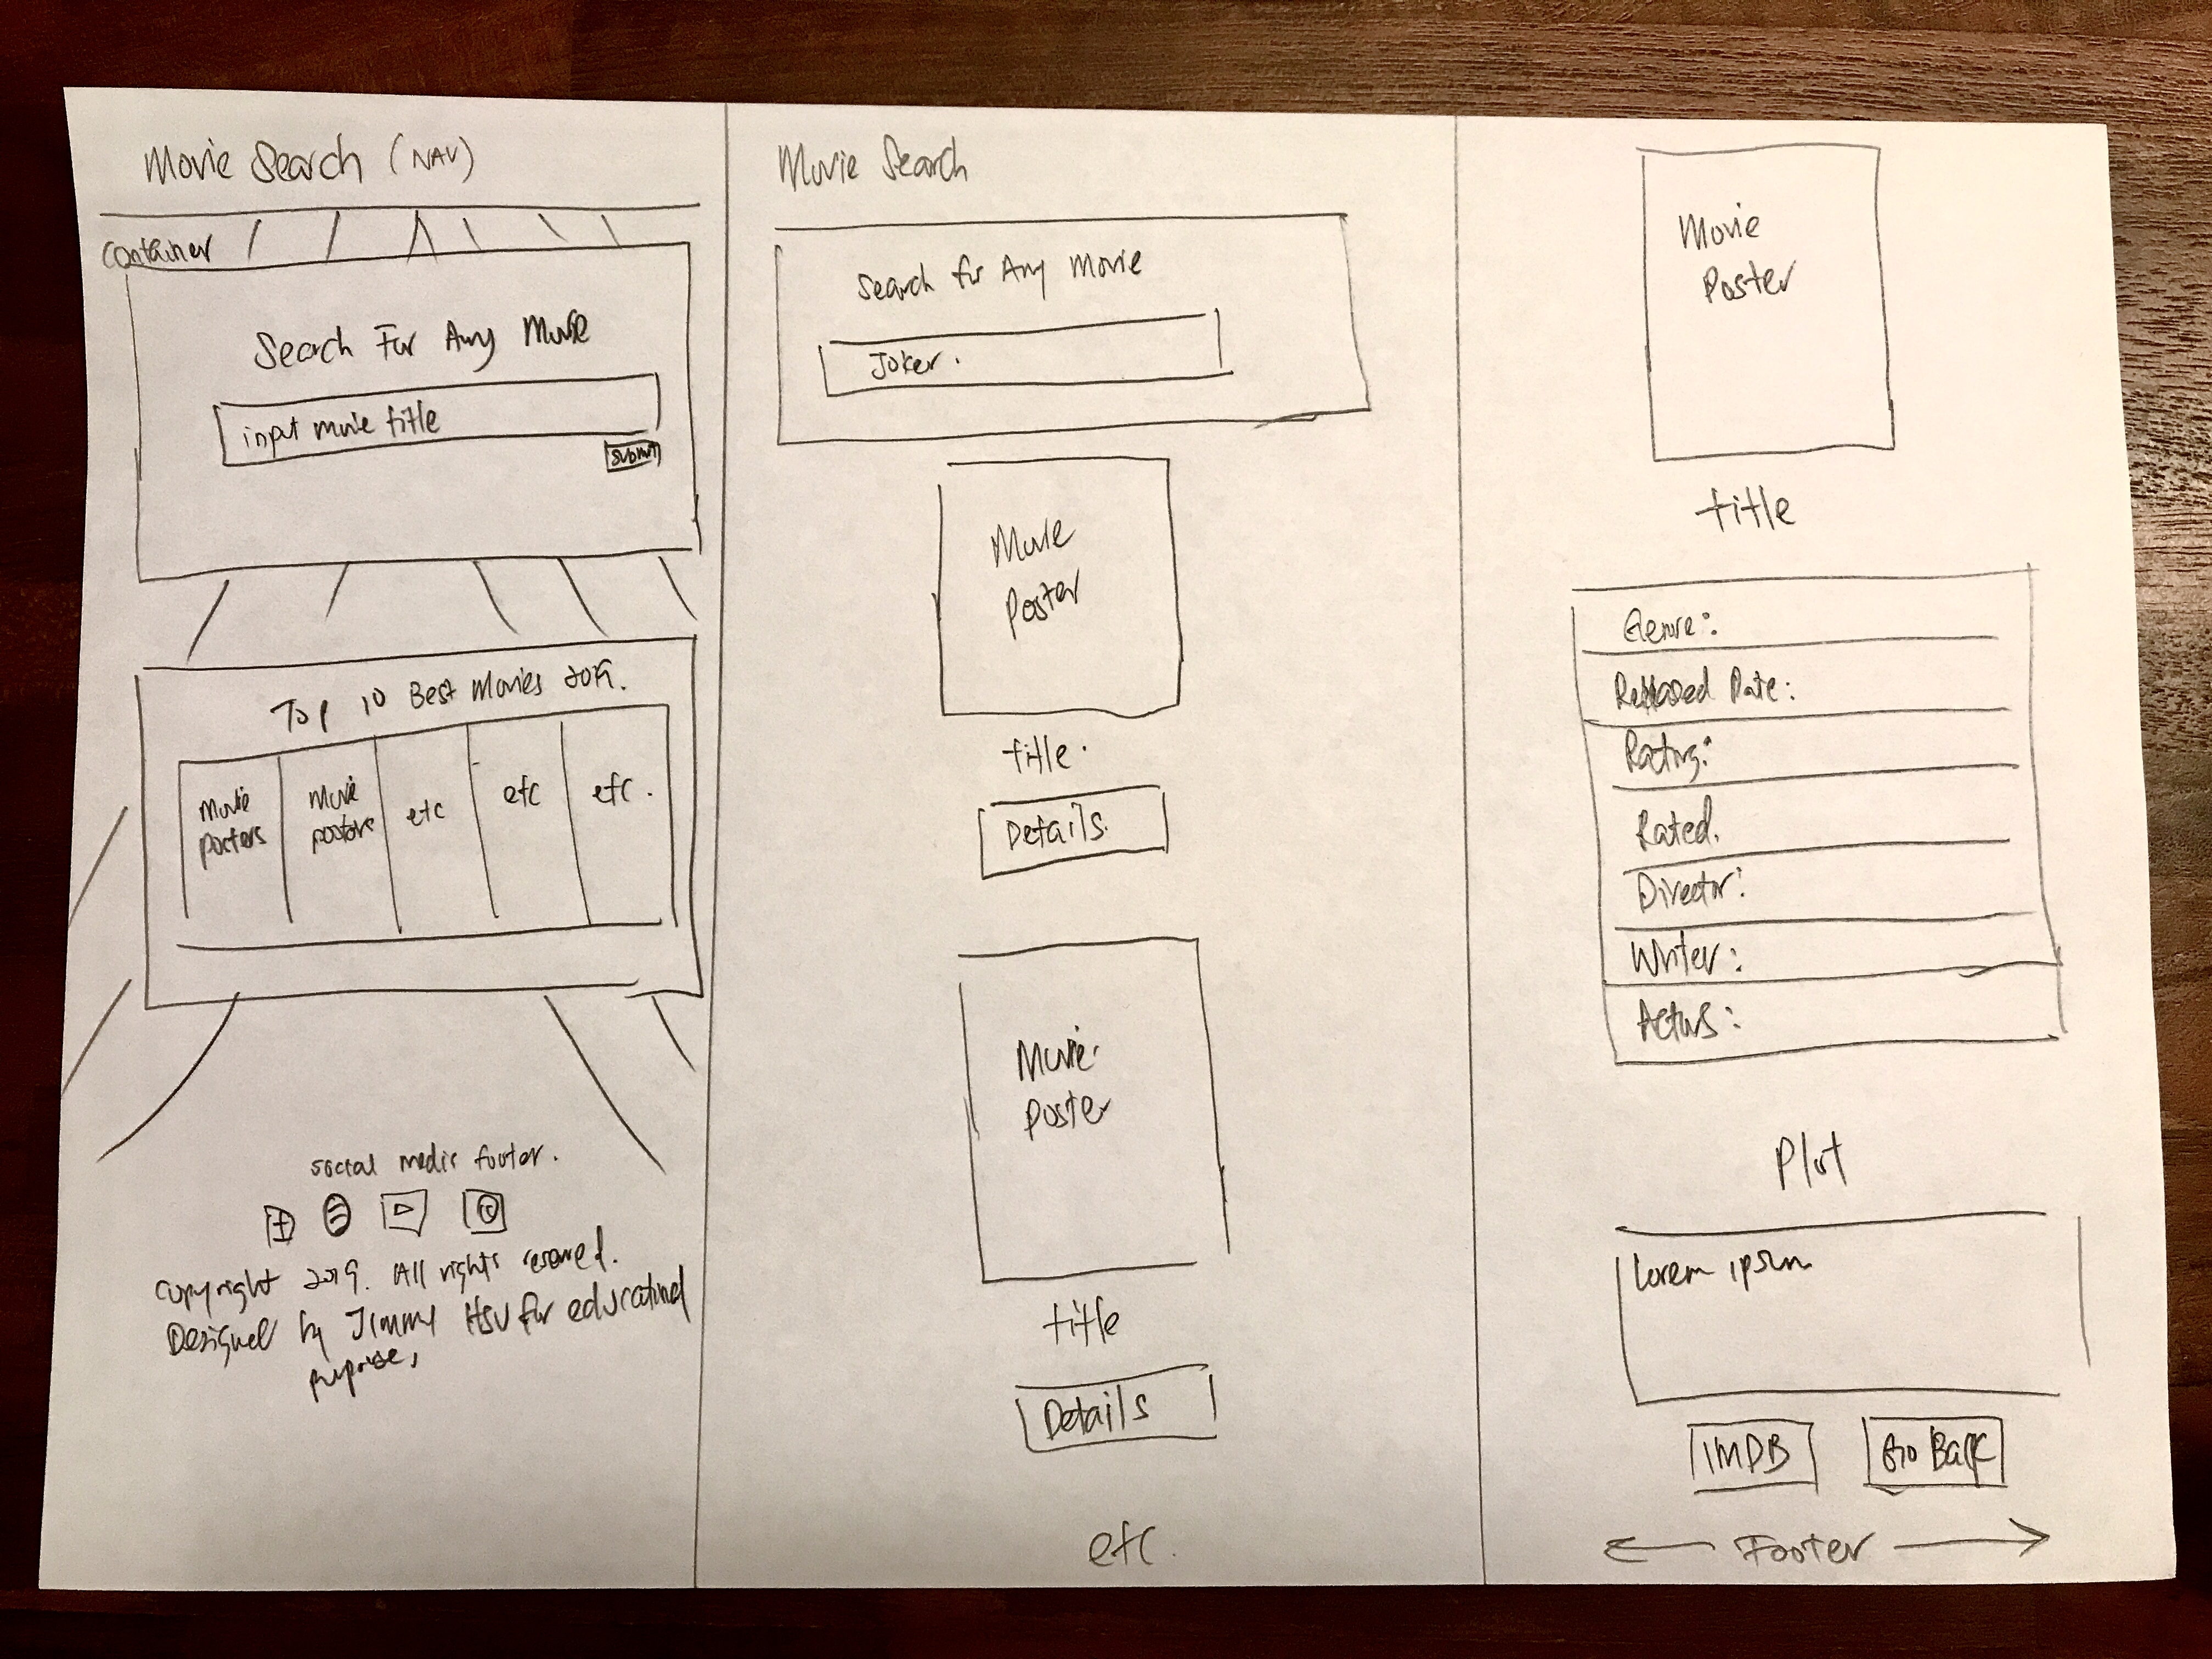 Movie Search (NAV)
Container
Search For Any Movie
input movie title
submit
Top 10 Best Movies 2019.
Movie
posters
Movie
posters
etc
etc
etc.
social media footer.
Copyright 2019. All rights reserved.
Designed by Jimmy Hsu for educational
purpose,
Movie Search
Search for Any Movie
Joker.
Movie
Poster
title.
Details.
Movie
Poster
title
Details
etc.
Movie
Poster
title
Genre:
Released Date:
Rating:
Rated.
Director:
Writer:
Actors:
Plot
Lorem ipsum
IMDB
Go Back
Footer